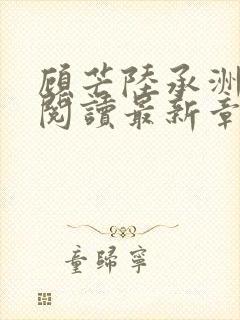 顾芒陸承洲
閱讀最新章
童歸寧